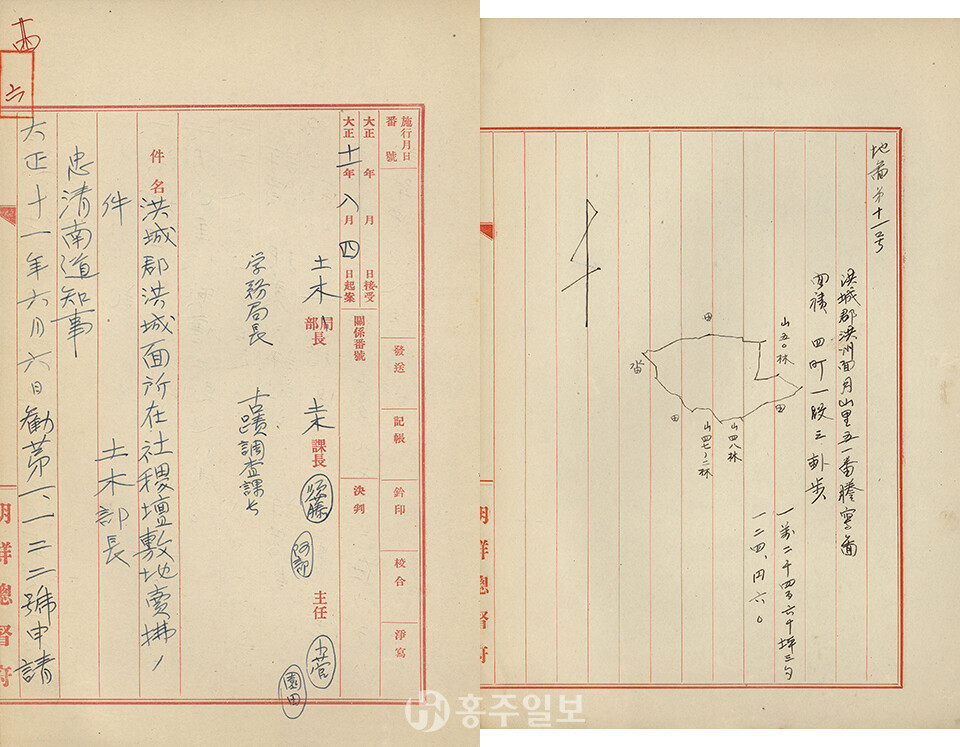 西
六
施行月日
番號
大正 年 月 日接受
大正十一年八月四日起案
關係番號
發送
記帳
決判
鈐印
校合
淨寫
土木局部長
土木課長
須藤
阿部
主任
小菅
園田
学務局長
古蹟調査課長
件名
洪城郡洪城面所在社稷壇敷地賣拂ノ
件
土木部長
忠清南道知事
大正十一年六月六日勸第一、一二二號申請
朝鮮總督府
地啚第十一号
洪城郡洪州面月山里五一番謄寫啚
面積 四町一段三畝步
一萬二千四百六十坪三勺
一二四、円六〇
田
山五〇林
畓
田
田
山四八林
山四七ノ二林
朝鮮總督府
홍주일보